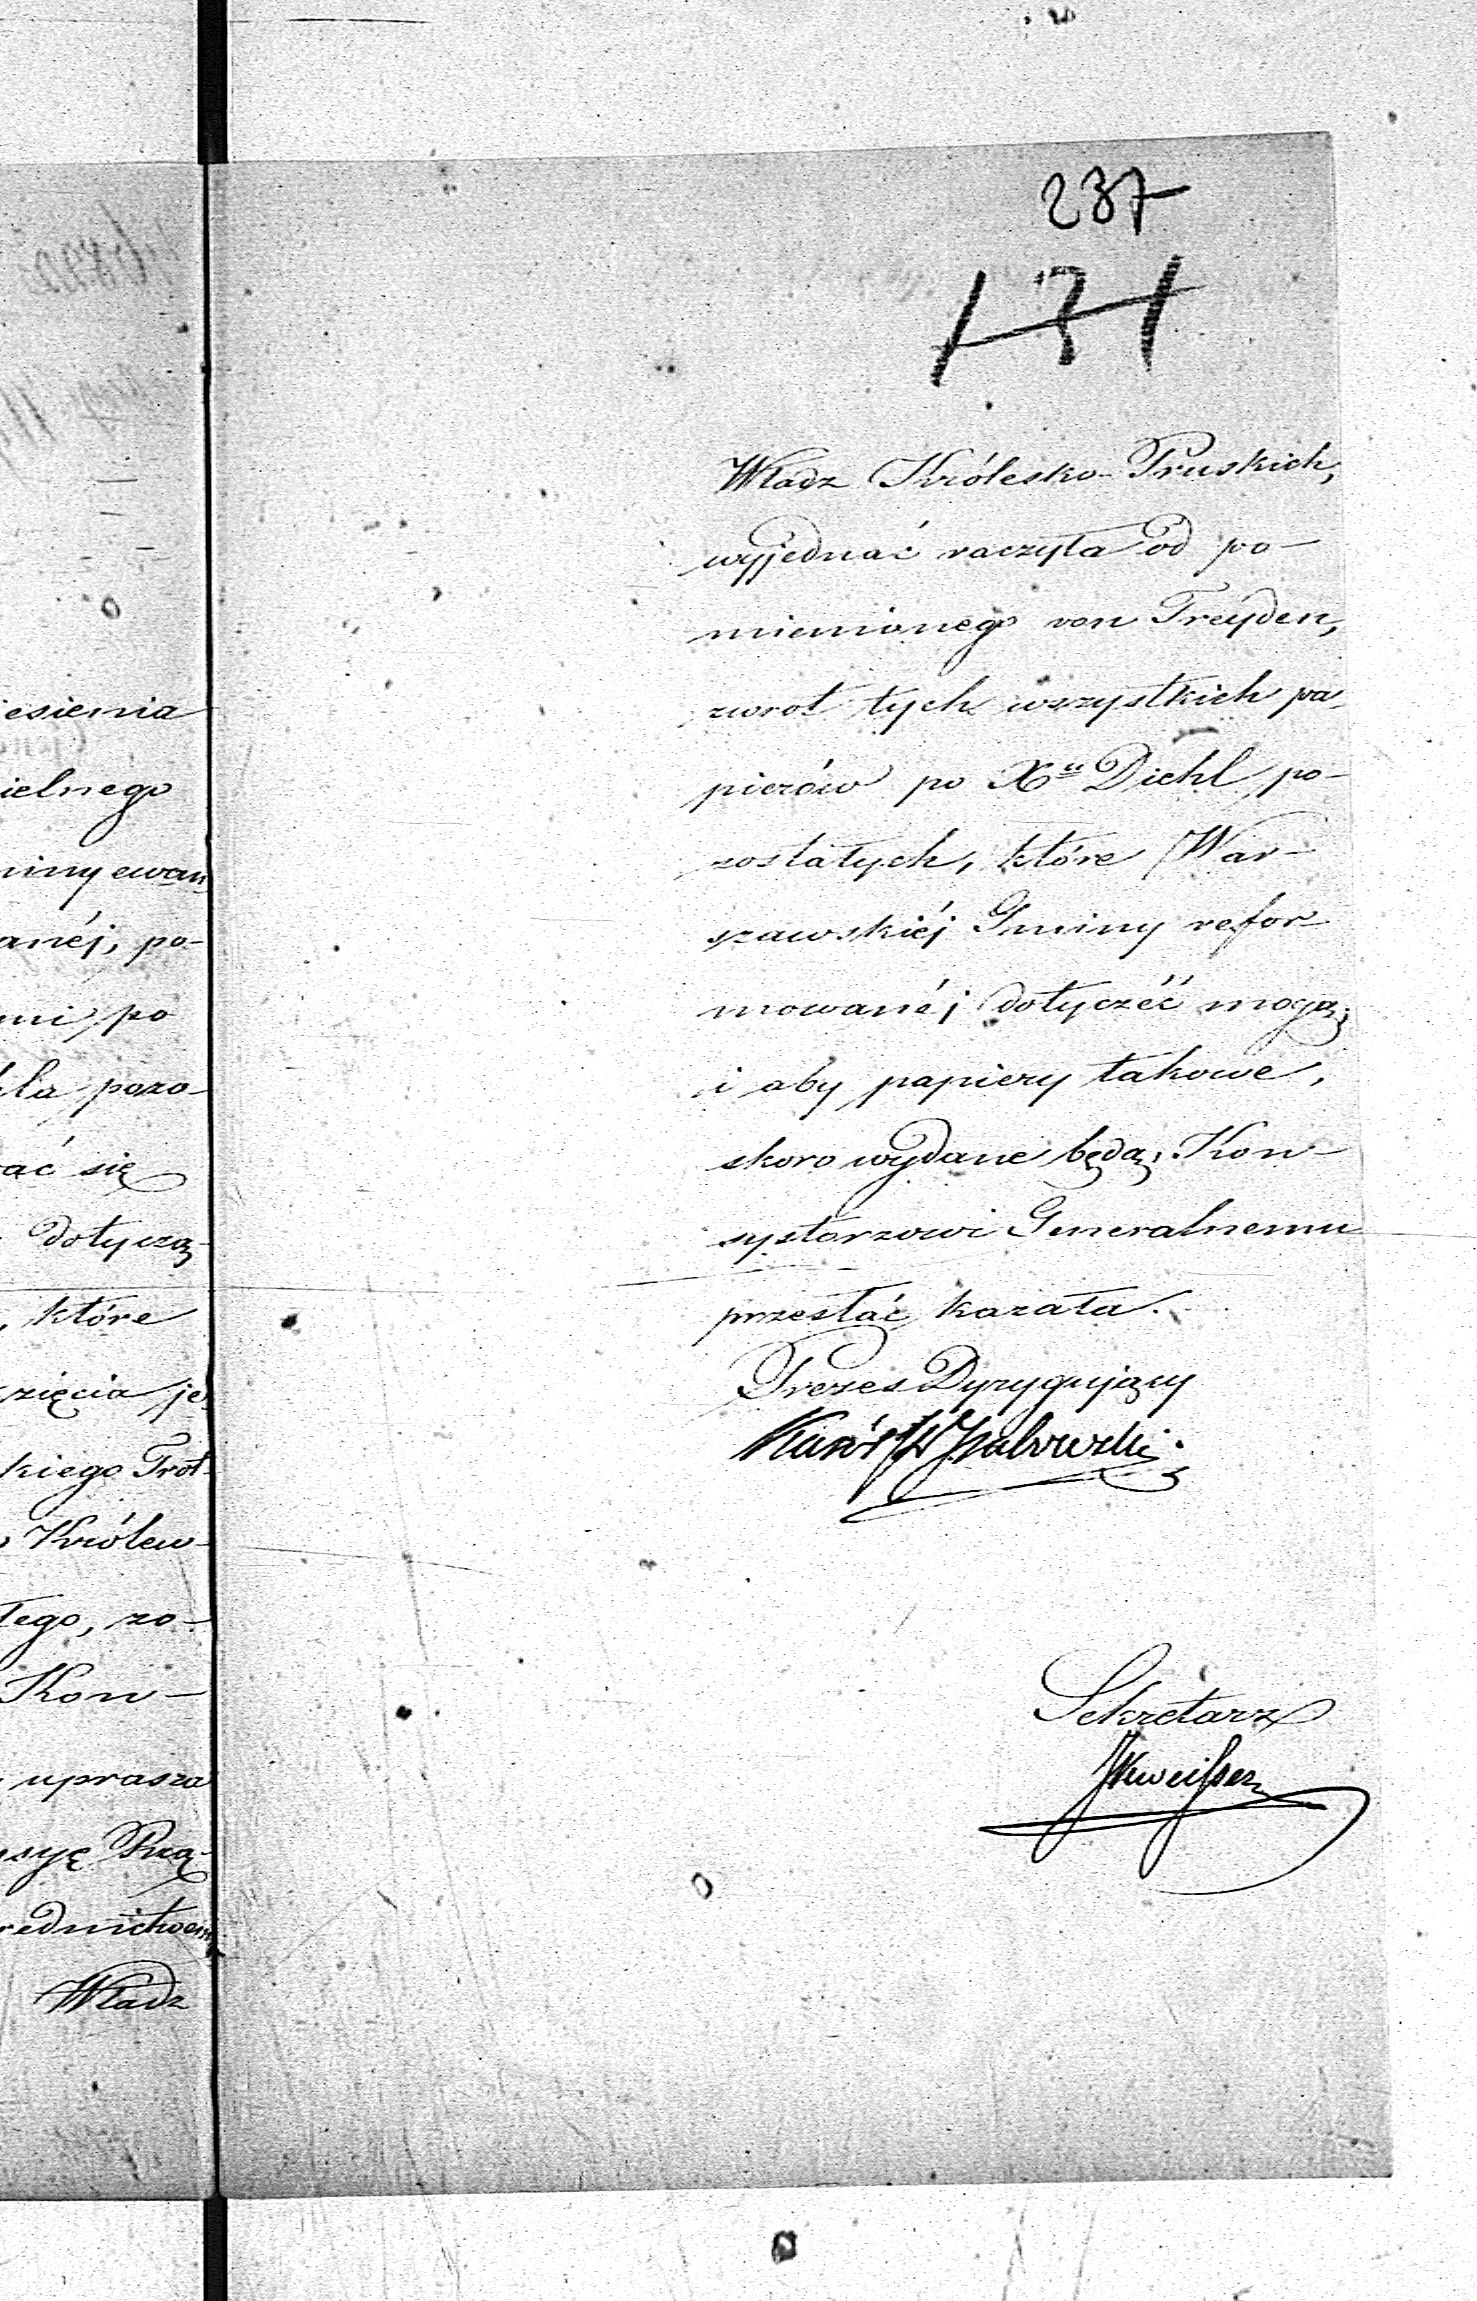 esienia
ielnego
miny ewan
anéj, po-
mi, po
la pozo-
ać się
dotyczą
, które
zięcia je
kiego Trot-
Królew-
tego, zo-
Kon-
uprasza
syę Rzą-
rednictwem
Władz
237
131
Władz Królesko-Pruskich,
wyjednać raczyła od po-
mienionego von Treyden,
zwrot tych wszystkich pa-
pierów po Xu Diehl po-
zostałych, które War-
szawskiéj Gminy refor-
mowanéj dotyczéć mogą;
i aby papiery takowe,
skoro wydane będą, Kon-
systorzowi Generalnemu
przesłać kazała.
Prezes Dyrygujący
Sekretarz